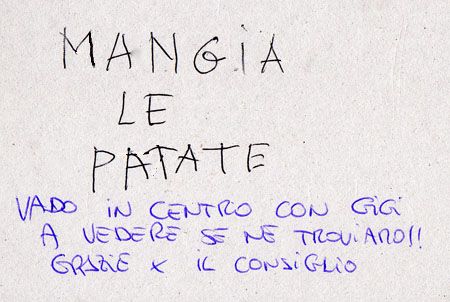 MANGIA
LE
PATATE
VADO IN CENTRO CON GIGI
A VEDERE SE NE TROVIAMO!!
GRAZIE X IL CONSIGLIO